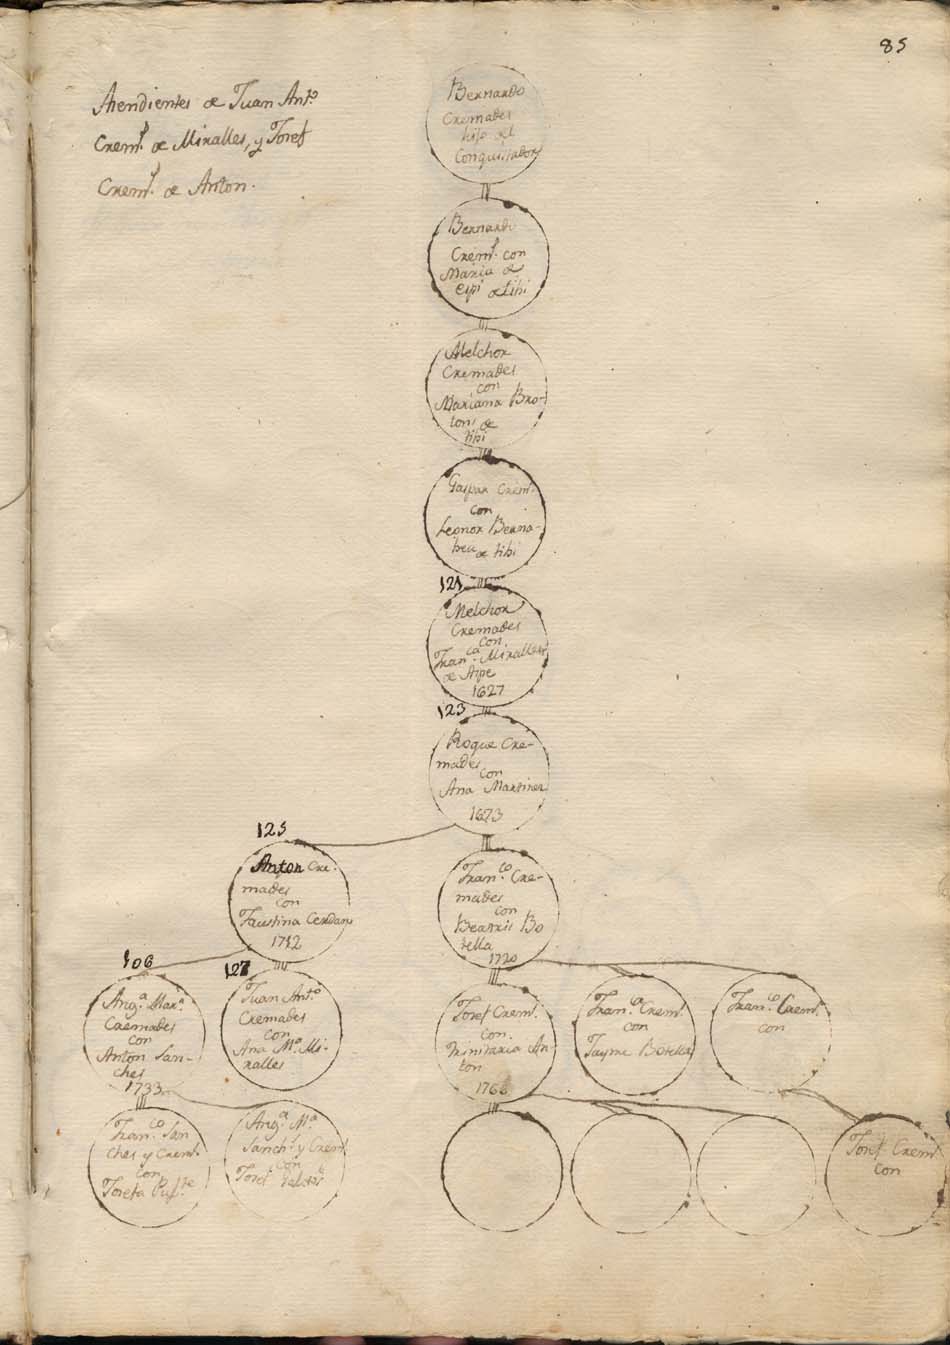 85
Asendientes de Juan Ant.º
Crem.s de Miralles, y Josef
Crem.s de Anton.
Bernardo
Cremades
hijo del
Conquistador
Bernardo
Crem.s con
Maria de
Espi de tibi
Melchor
Cremades
con
Mariana Bro-
tons de
tibi
Gaspar Crem.s
con
Leonor Berna-
beu de tibi
121
Melchor
Cremades
con
Fran.ca Miralles
de Aspe
1627
123
Roque Cre-
mades
con
Ana Martinez
1673
125
Anton Cre-
mades
con
Faustina Cerdan
1712
Fran.co Cre-
mades
con
Beatris Bo
tella
1720
106
Ang.a Mar.a
Cremades
con
Anton San-
ches
1733
127
Juan Ant.º
Cremades
con
Ana M.a Mi-
ralles
Josef Crem.s
con
Trinitaria An-
ton
1766
Fran.ca Crem.s
con
Jayme Botella
Fran.co Crem.s
con
Fran.co San
ches y Crem.s
con
Josefa
Ang.a M.a
Sanch.s y Crem.s
con
Josef
Josef Crem.s
con